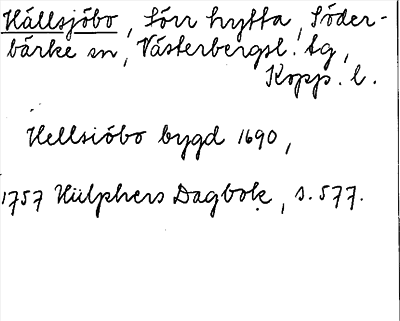 Hällsjöbo, förr hytta, Söder-
bärke sn, Västerbergsl. tg,
Kopp. l.
Hellsiöbo bygd 1690,
1757 Hülphers Dagbok, s. 577.